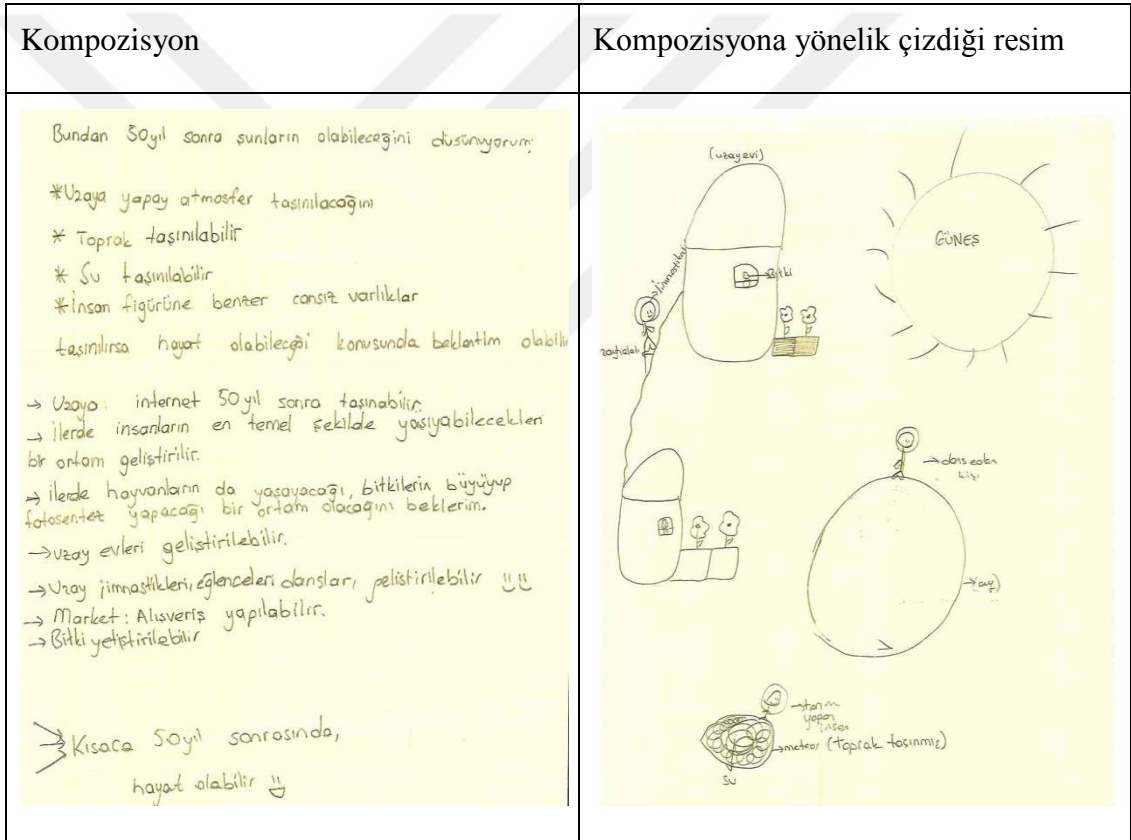 Kompozisyon
Kompozisyona yönelik çizdiği resim
Bundan 50yıl sonra şunların olabileceğini düşünüyorum:
*Uzaya yapay atmosfer taşınılacağını
* Toprak taşınılabilir
* Su taşınılabilir
*İnsan figürüne benzer cansız varlıklar
taşınılırsa hayat olabileceği konusunda beklentim olabilir
→ Uzaya: internet 50yıl sonra taşınabilir.
→ ilerde insanların en temel şekilde yaşıyabilecekleri
bir ortam geliştirilir.
→ ilerde hayvanların da yaşayacağı, bitkilerin büyüyüp
fotosentez yapacağı bir ortam olacağını beklerim.
→uzay evleri geliştirilebilir.
→Uzay jimnastikleri, eğlenceleri dansları, geliştirilebilir
→ Market: Alışveriş yapılabilir.
→Bitki yetiştirilebilir
Kısaca 50yıl sonrasında,
hayat olabilir
(uzayevi)
GÜNEŞ
Bitki
→dans eden
kişi
→(ay)
→tarım
yapan
insan
→meteor (Toprak taşınmış)
Su